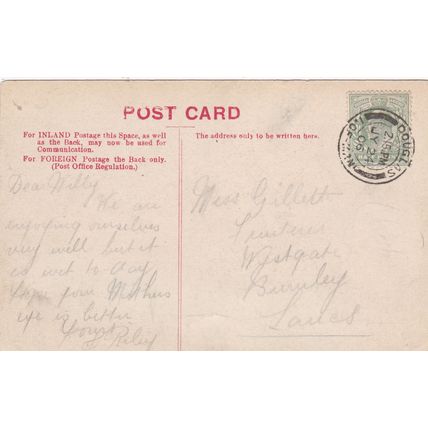 POST CARD
For INLAND Postage this Space, as well
as the Back, may now be used for
Communication.
For FOREIGN Postage the Back only.
(Post Office Regulation.)
The address only to be written here.
DOUGLAS
2.15 PM
JY 24
06
Dear Willy
We are
enjoying ourselves
very well but it
is wet to day
hope your Mothers
eye is better
Yours
Riley
Miss Gillett
Westgate
Burnley
Lancs